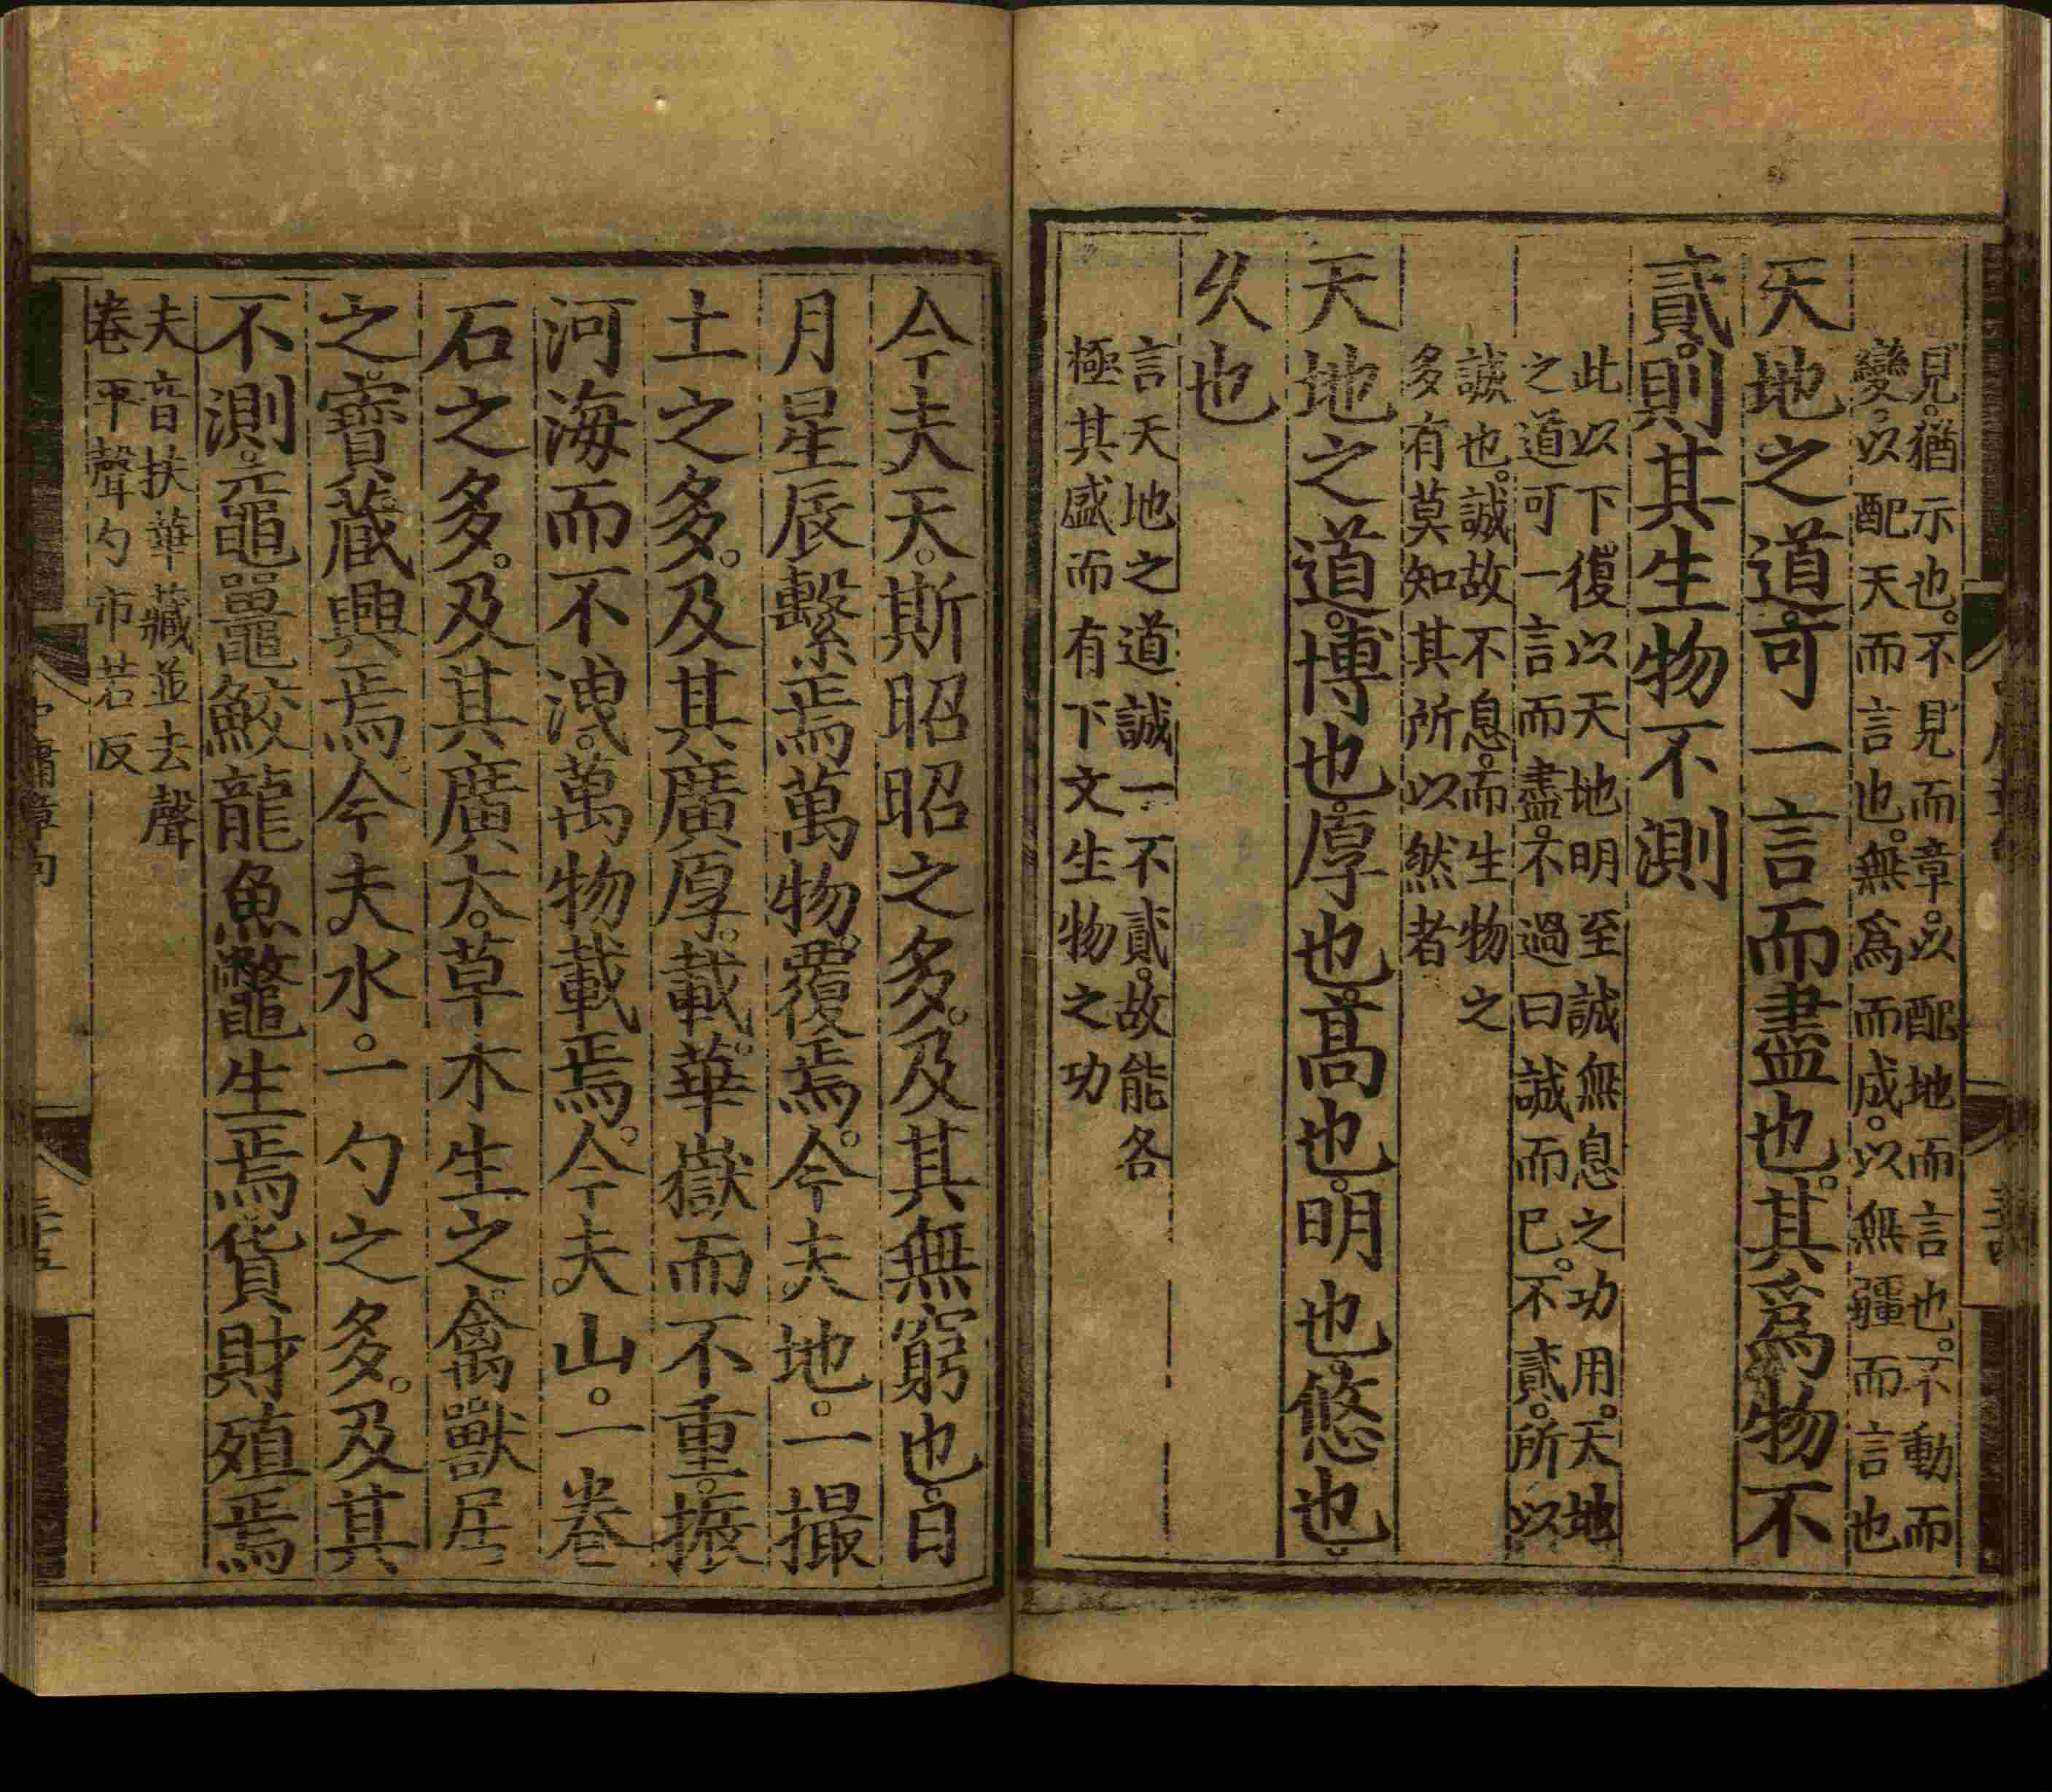 見。猶示也。不見而章。以配地而言也。不動而
變。以配天而言也。無爲而成。以無疆而言也
天地之道。可一言而盡也。其爲物不
貳。則其生物不測
此以下復以天地明至誠無息之功用。天地
之道可一言而盡。不過曰誠而已。不貳。所以
誠也。誠故不息。而生物之
多有莫知其所以然者
天地之道。博也。厚也。高也。明也。悠也。
久也
言天地之道誠一不貳。故能各
極其盛而有下文生物之功
今夫天。斯昭昭之多。及其無窮也。日
月星辰繫焉萬物。覆焉。今夫地。一撮
土之多。及其廣厚。載華嶽而不重。振
河海而不洩。萬物載焉。今夫山。一卷
石之多。及其廣大。草木生之。禽獸居
之。寶藏興焉。今夫水。一勺之多。及其
不測。黿鼉鮫龍魚鼈生焉貨財殖焉
夫音扶華藏並去聲
卷平聲勺市若反
中庸章句